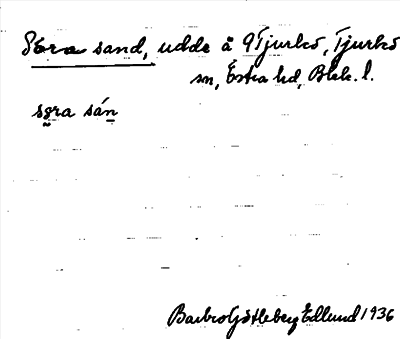 Söra sand, udde å Tjurkö, Tjurkö
sn, Östra hd, Blek. l.
søra sán
Barbro Götleberg Edlund 1936